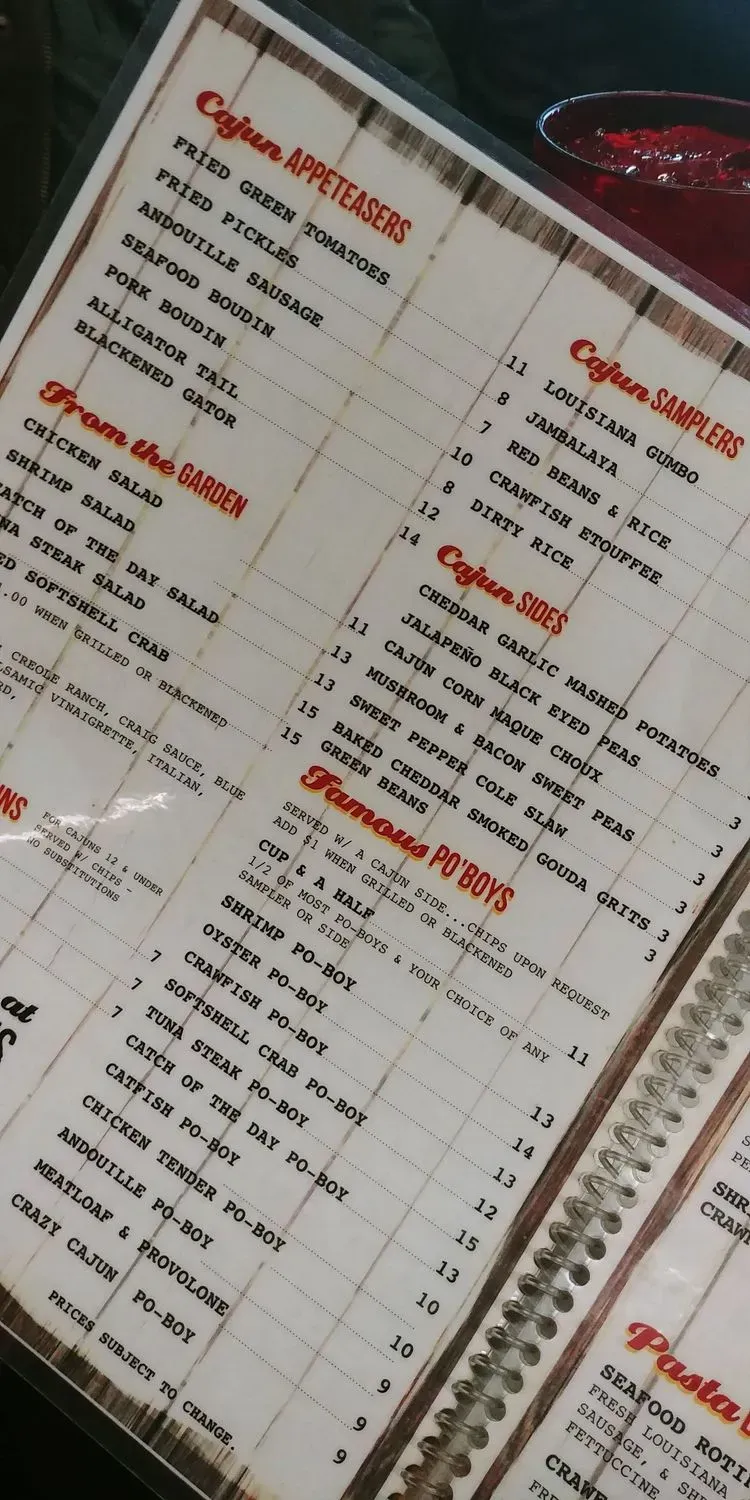 Cajun APPETEASERS
FRIED GREEN TOMATOES 11
FRIED PICKLES 8
ANDOUILLE SAUSAGE 7
SEAFOOD BOUDIN 10
PORK BOUDIN 8
ALLIGATOR TAIL 12
BLACKENED GATOR 14
From the GARDEN
CHICKEN SALAD 11
SHRIMP SALAD 13
OF THE DAY SALAD 13
STEAK SALAD 15
SOFTSHELL CRAB 15
WHEN GRILLED OR BLACKENED
CREOLE RANCH, CRAIG SAUCE, BLUE
VINAIGRETTE, ITALIAN,
FOR CAJUNS 12 & UNDER
SERVED W/ CHIPS -
NO SUBSTITUTIONS
7
7
7
at
Cajun SAMPLERS
LOUISIANA GUMBO
JAMBALAYA
RED BEANS & RICE
CRAWFISH ETOUFFEE
DIRTY RICE
Cajun SIDES
CHEDDAR GARLIC MASHED POTATOES
JALAPEÑO BLACK EYED PEAS 3
CAJUN CORN MAQUE CHOUX 3
MUSHROOM & BACON SWEET PEAS 3
SWEET PEPPER COLE SLAW 3
BAKED CHEDDAR SMOKED GOUDA GRITS 3
GREEN BEANS 3
Famous PO'BOYS
SERVED W/ A CAJUN SIDE...CHIPS UPON REQUEST
ADD $1 WHEN GRILLED OR BLACKENED
CUP & A HALF 11
1/2 OF MOST PO-BOYS & YOUR CHOICE OF ANY
SAMPLER OR SIDE
SHRIMP PO-BOY 13
OYSTER PO-BOY 14
CRAWFISH PO-BOY 13
SOFTSHELL CRAB PO-BOY 12
TUNA STEAK PO-BOY 15
CATCH OF THE DAY PO-BOY 13
CATFISH PO-BOY 10
CHICKEN TENDER PO-BOY 10
ANDOUILLE PO-BOY 9
MEATLOAF & PROVOLONE 9
CRAZY CAJUN PO-BOY 9
PRICES SUBJECT TO CHANGE.
Pasta
SEAFOOD
FRESH LOUISIANA
SAUSAGE, &
FETTUCCINE